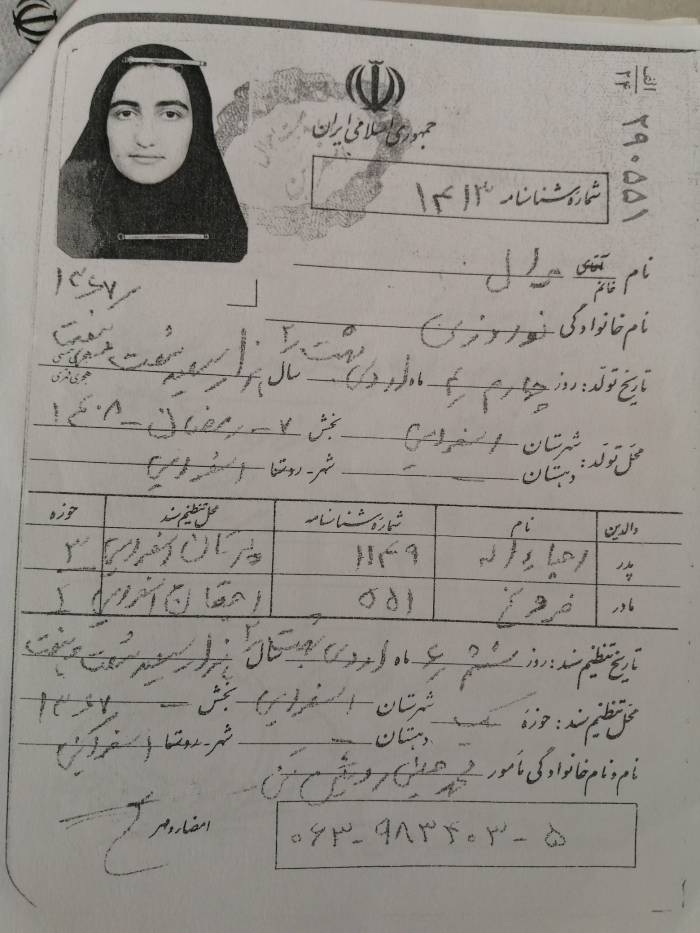 الف
۲۴
۲۹۰۵۵۱
جمهوری اسلامی ایران
شماره شناسنامه ۱۴۱۳
نام آقای خانم
۱۳۶۷/
نام خانوادگی نوروزی
تاریخ تولد: روز چهارم ۴ ماه اردی بهشت ۲ سال هزار سیصد شصت هفت هجری شمسی هجری قمری
محل تولد: شهرستان اسفراین بخش ۷ - رمضان - ۱۴۰۸
دهستان شهر - روستا اسفراین
والدین نام شماره شناسنامه محل تنظیم سند حوزه
پدر ۱۱۴۹ اسفراین ۳
مادر ۵۵۱ اسفراین
تاریخ تنظیم سند: روز ششم ۶ ماه اردی بهشت ۲ سال هزار سیصد شصت هفت
محل تنظیم سند: حوزه یک شهرستان اسفراین بخش - ۱۳۶۷
دهستان - شهر - روستا اسفراین
نام و نام خانوادگی مأمور
امضاء و مهر
۰۶۳-۹۸۳۴۰۳-۵